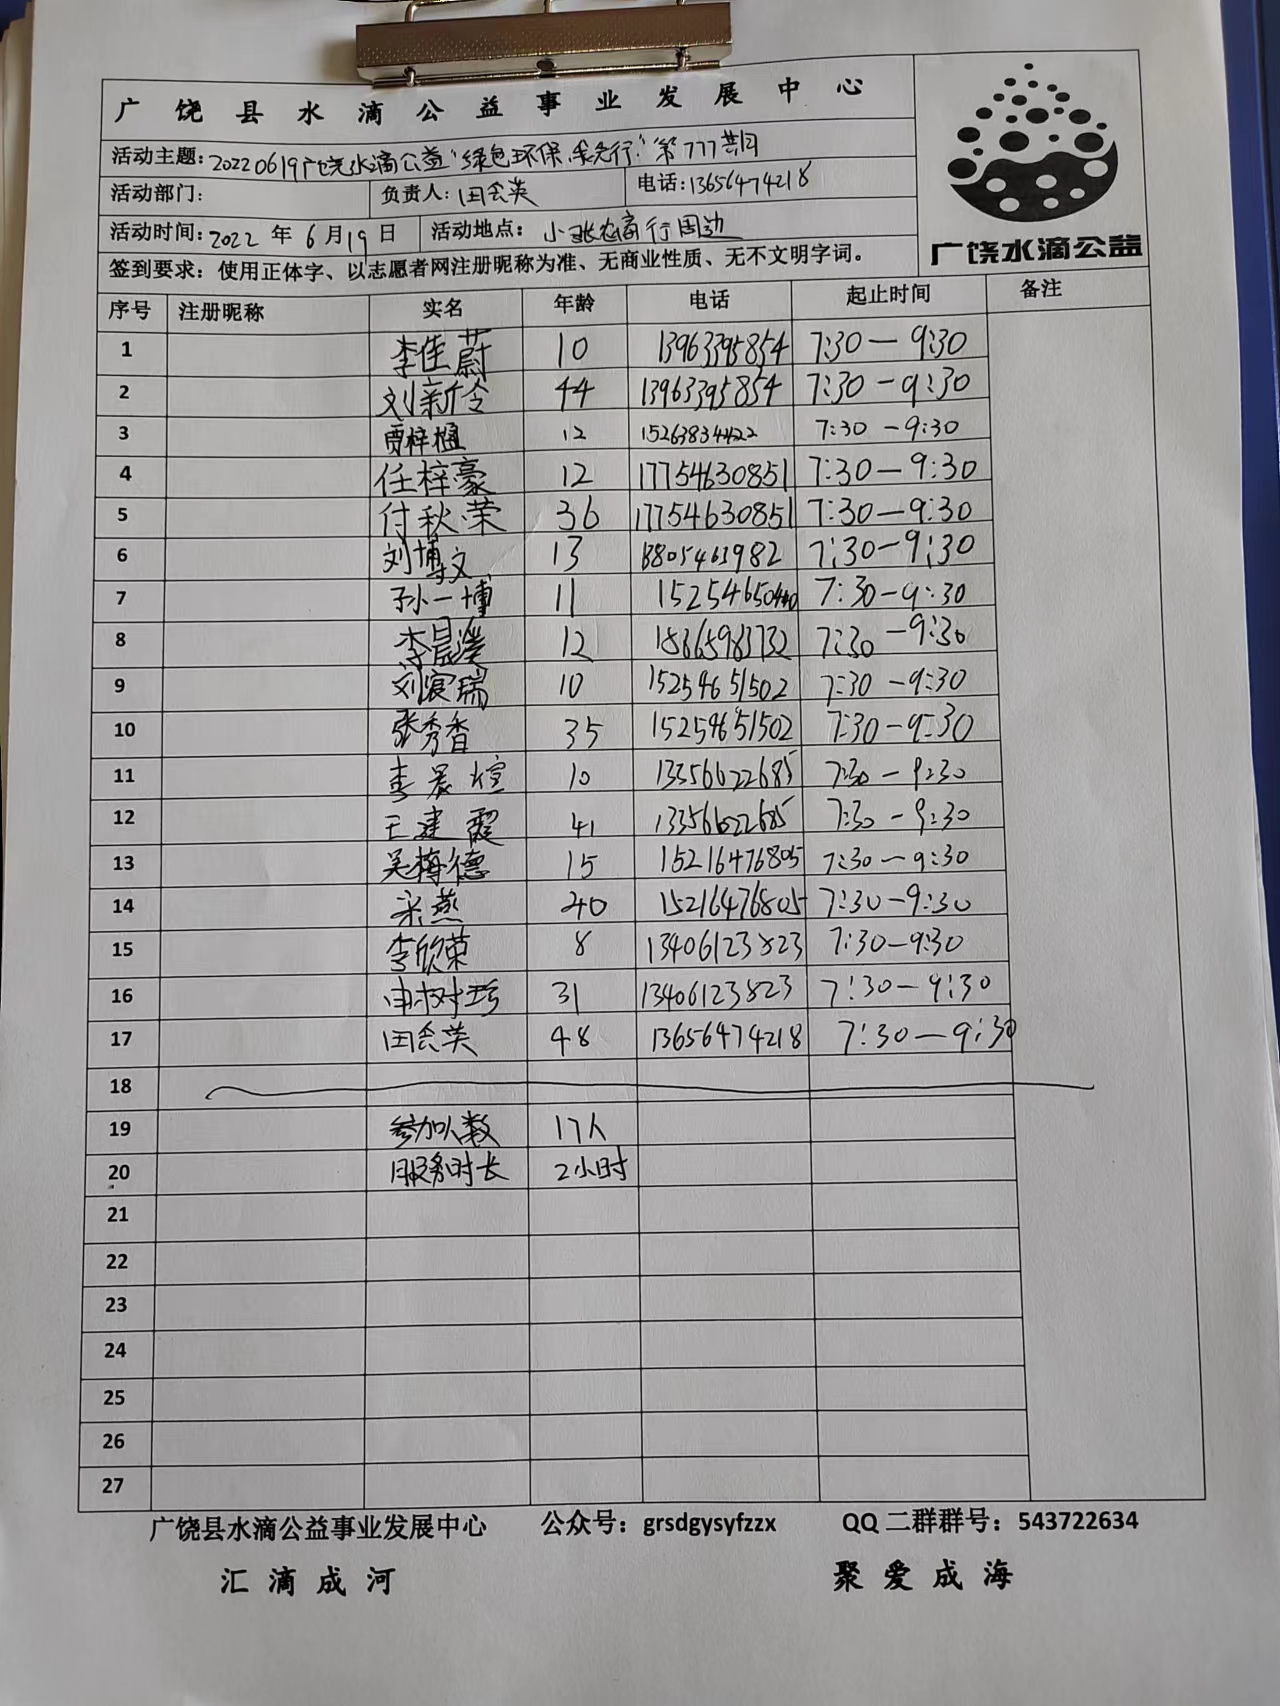 广饶县水滴公益事业发展中心
活动主题：20220619广饶水滴公益"绿色环保,先行"第777期
活动部门： 负责人：田会英 电话：13656474218
活动时间：2022年6月19日 活动地点：小张农商行周边
广饶水滴公益
签到要求：使用正体字、以志愿者网注册昵称为准、无商业性质、无不文明字词。
序号 注册昵称 实名 年龄 电话 起止时间 备注
1 李佳蔚 10 13963395854 7:30—9:30
2 刘新伶 44 13963395854 7:30—9:30
3 贾梓楹 12 15263834422 7:30—9:30
4 任梓豪 12 17754630851 7:30—9:30
5 付秋荣 36 17754630851 7:30—9:30
6 刘博文 13 18805463982 7:30—9:30
7 孙一博 11 7:30—9:30
8 李晨溪 12 7:30—9:30
9 刘宸瑞 10 15254651502 7:30—9:30
10 张秀香 35 15254651502 7:30—9:30
11 李晨煊 10 13356622685 7:30—9:30
12 王建霞 41 13356622685 7:30—9:30
13 吴梅德 15 15216476805 7:30—9:30
14 宋燕 40 15216476805 7:30—9:30
15 李欣荣 8 13406123823 7:30—9:30
16 申树珍 31 13406123823 7:30—9:30
17 田会英 48 13656474218 7:30—9:30
18
19 参加人数 17人
20 服务时长 2小时
21
22
23
24
25
26
27
广饶县水滴公益事业发展中心 公众号：grsdgysyfzzx QQ二群群号：543722634
汇滴成河 聚爱成海